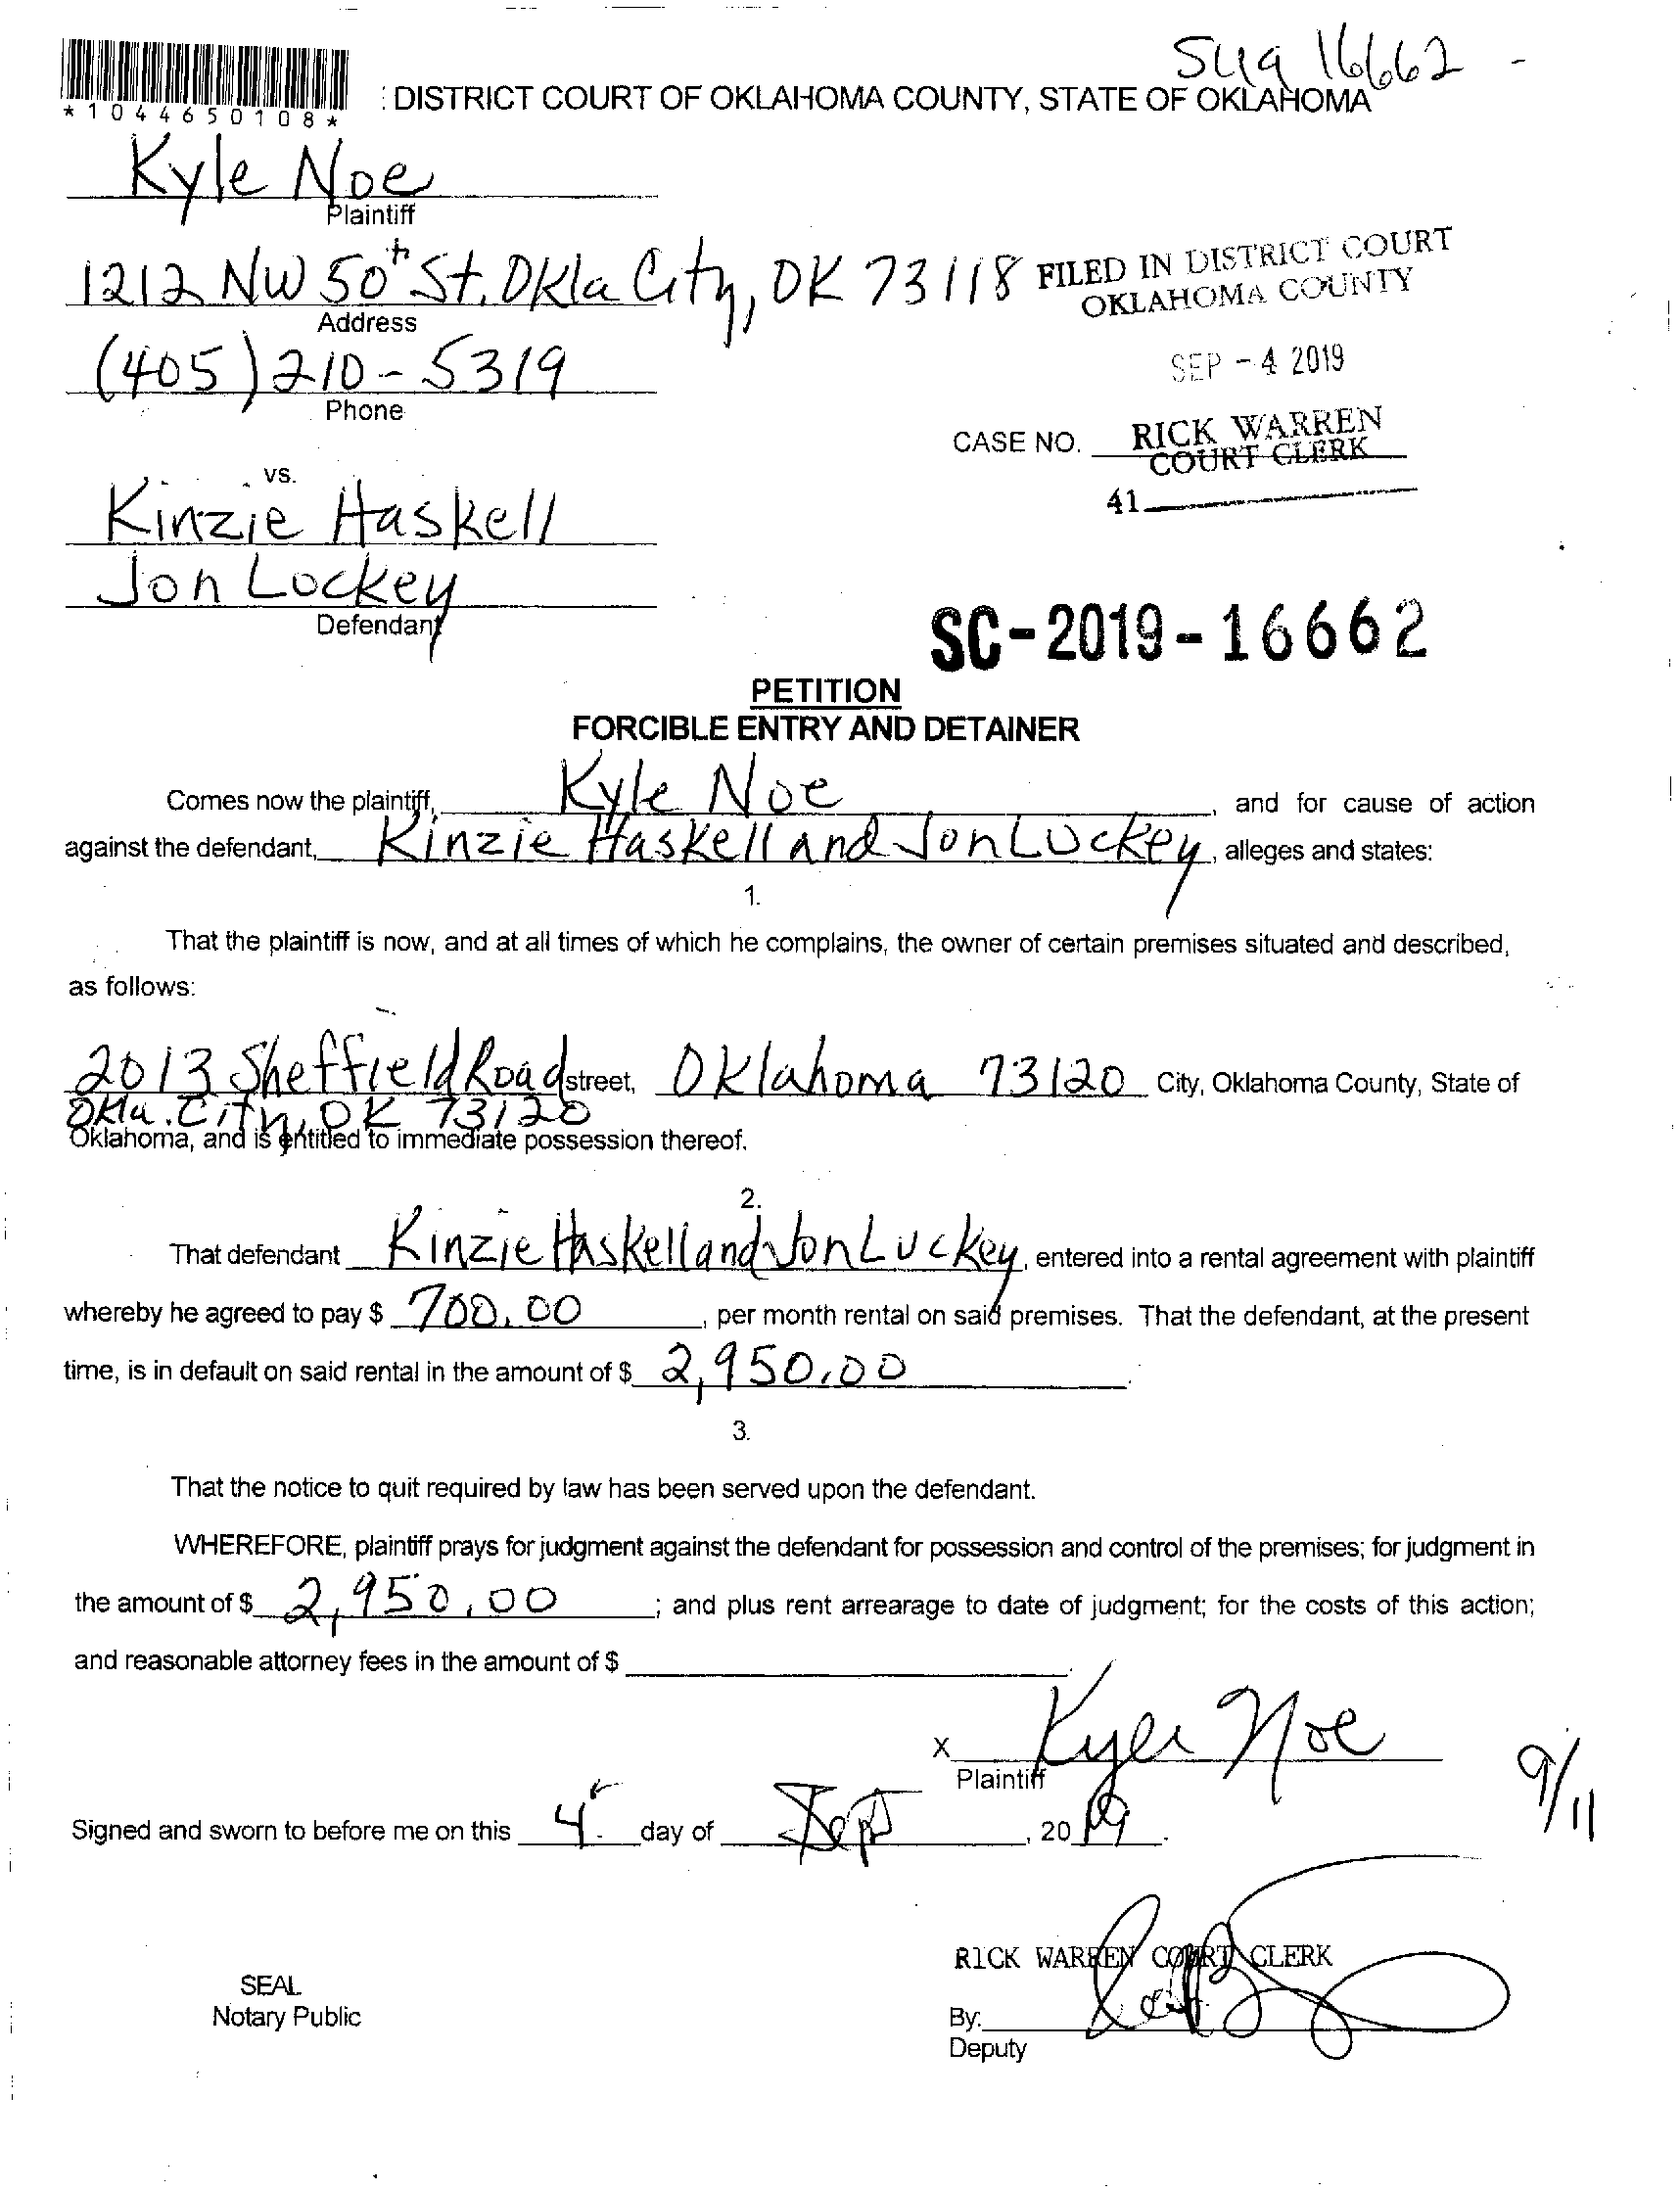 SC19 16662 -
*1044650108*
: DISTRICT COURT OF OKLAHOMA COUNTY, STATE OF OKLAHOMA
Kyle Noe
Plaintiff
1212 NW 50th St. Okla City, OK 73118
Address
FILED IN DISTRICT COURT
OKLAHOMA COUNTY
(405) 210-5319
Phone
SEP - 4 2019
CASE NO.
RICK WARREN
COURT CLERK
41
vs.
Kinzie Haskell
Jon Lockey
Defendant
SC-2019-16662
PETITION
FORCIBLE ENTRY AND DETAINER
Comes now the plaintiff, Kyle Noe, and for cause of action
against the defendant, Kinzie Haskell and Jon Luckey, alleges and states:
1.
That the plaintiff is now, and at all times of which he complains, the owner of certain premises situated and described,
as follows:
2013 Sheffield Road street, Oklahoma 73120 City, Oklahoma County, State of
Okla. City, OK 73120
Oklahoma, and is entitled to immediate possession thereof.
2.
That defendant Kinzie Haskell and Jon Luckey, entered into a rental agreement with plaintiff
whereby he agreed to pay $ 700.00, per month rental on said premises. That the defendant, at the present
time, is in default on said rental in the amount of $ 2,950.00.
3.
That the notice to quit required by law has been served upon the defendant.
WHEREFORE, plaintiff prays for judgment against the defendant for possession and control of the premises; for judgment in
the amount of $ 2,950.00; and plus rent arrearage to date of judgment; for the costs of this action;
and reasonable attorney fees in the amount of $
X Kyle Noe
Plaintiff
9/11
Signed and sworn to before me on this 4 day of Sept, 2019.
RICK WARREN COURT CLERK
SEAL
Notary Public
By:
Deputy